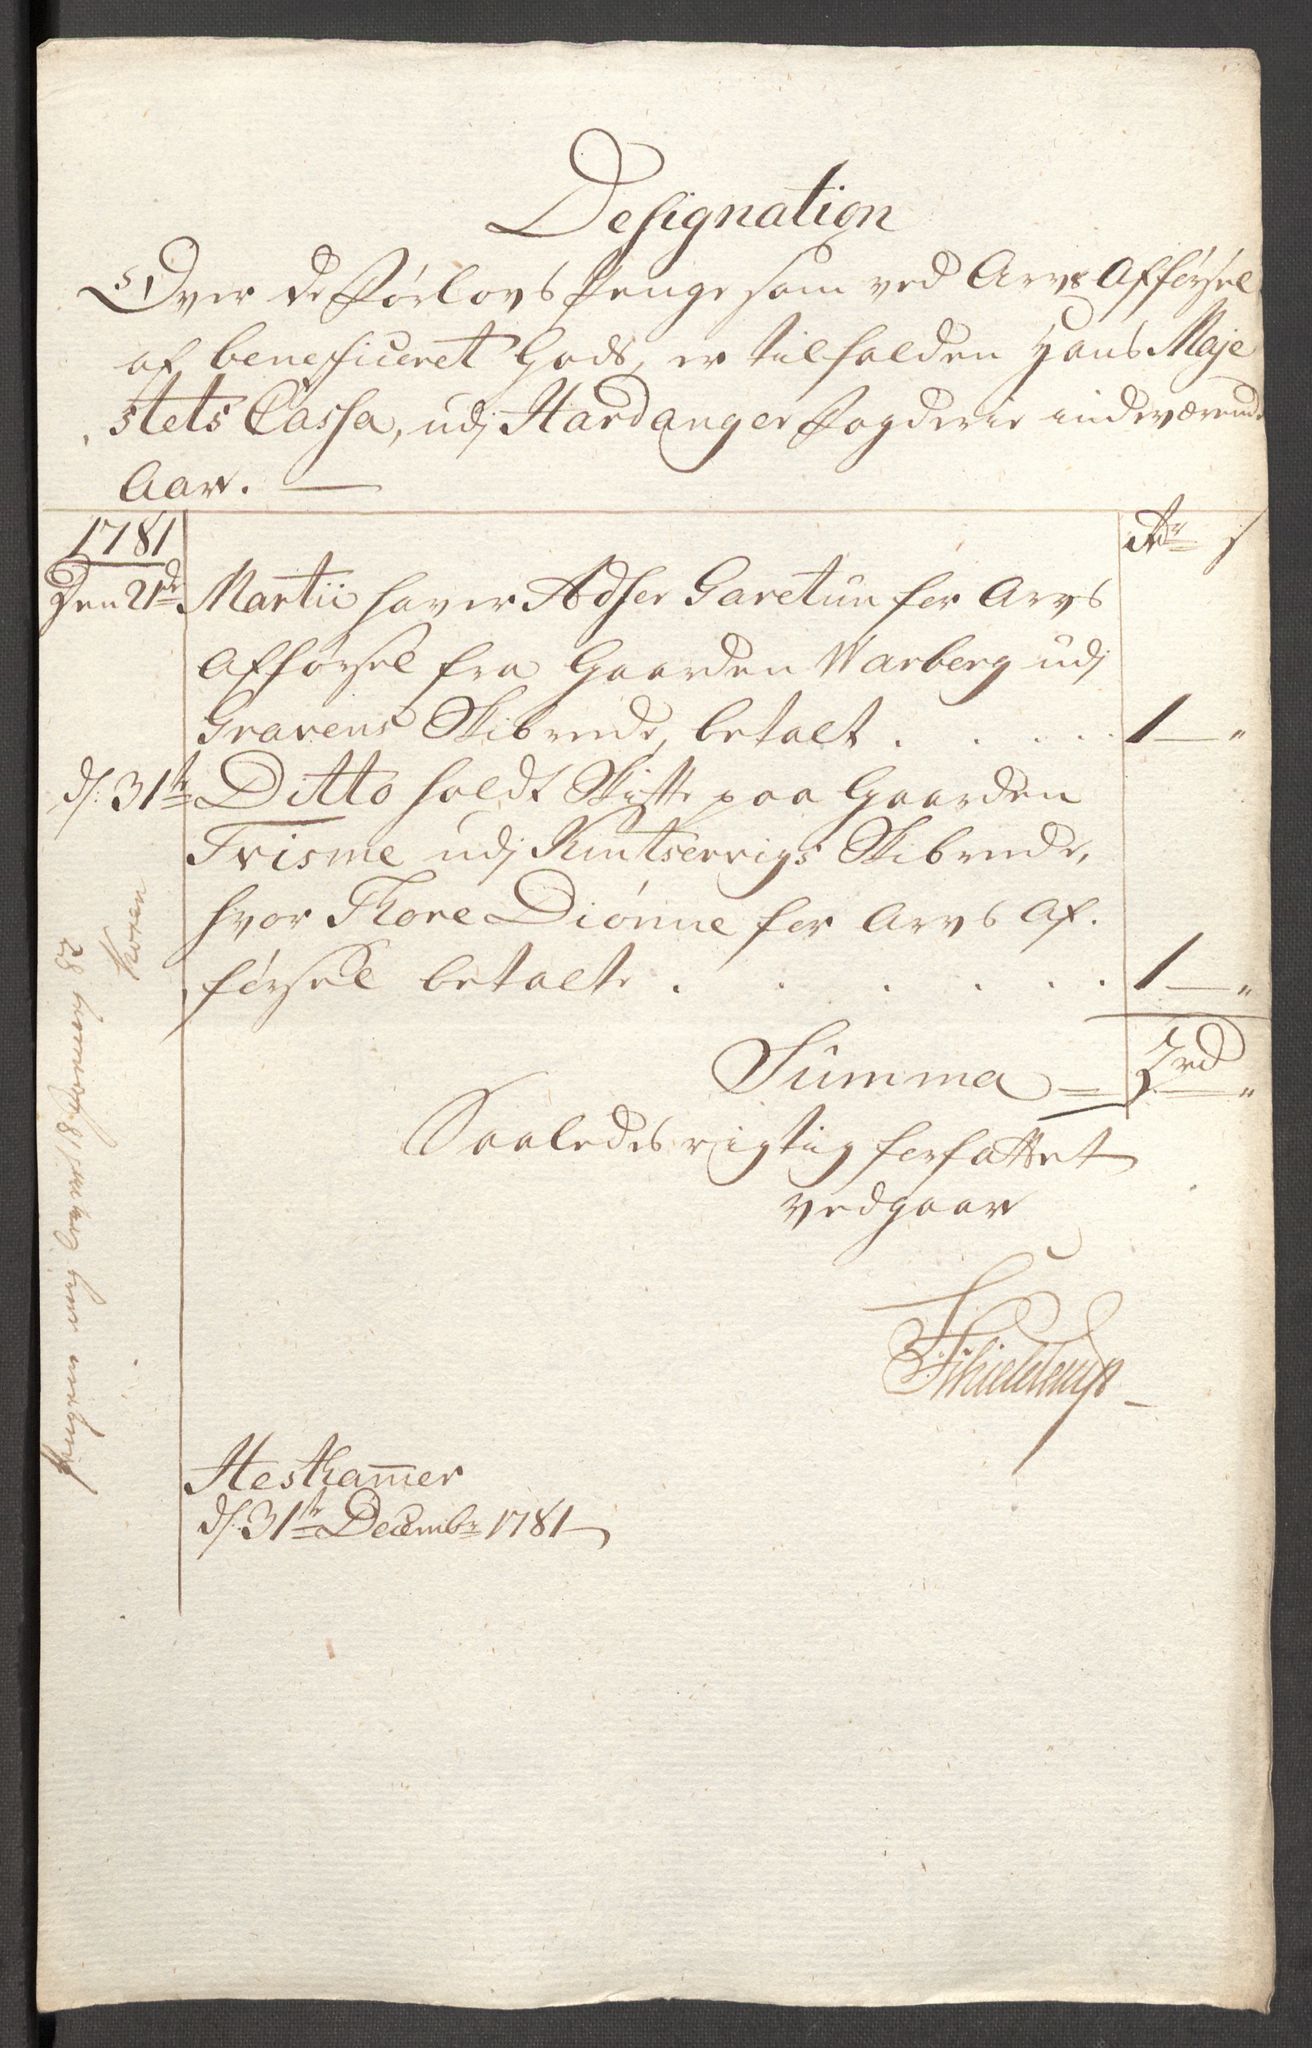 Designation
Over de Förlovs Penge som ved Arvs Afförsel
af beneficeret Gods, er tilfalden Hans Maje
stets Cassa, udj Hardanger Fogderie indeværende
Aar.
1781
Rdr s
Den 21de Martii haver Adser Garetun for Arvs
Afförsel fra Gaarden Warberg udj
Gravens Skibrede, betalt . . . . . 1 — "
d: 31te Ditto holdt Skifte paa Gaarden
Trisme udj Kintservigs Skibrede,
hvor Thore Diönne for Arvs Af-
försel betalte . . . . . . 1 — "
Summa = 2rd "
Saaledes rigtig forfattet
vedgaar
Schieldrup
Hestham̅er
d: 31te Decembr 1781